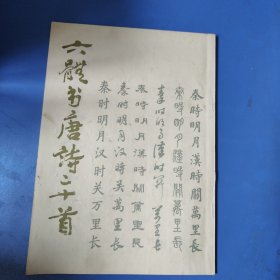 秦時明月漢時關萬里長
秦時明月漢時關萬里長
秦时明月漢时关万里长
秦時明月漢時關萬里長
秦时明月漢时关萬里長
秦时明月汉时关万里长
六體书唐詩二十首